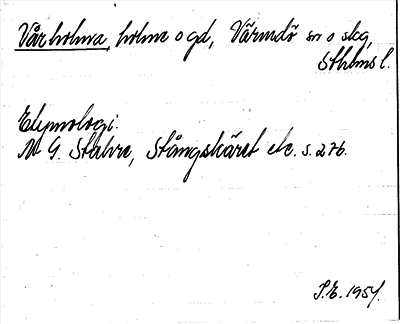 Vårholma, holme o gd, Värmdö sn o skg,
Sthlms l.
Etymologi.
N G. Stahre, Stångskäret etc. s. 276.
S.E. 1954.